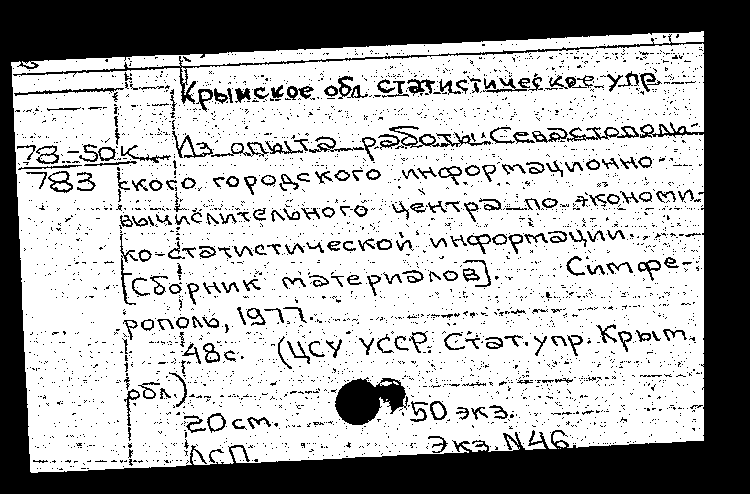 Крымское обл. статистическое упр.
78-50к Из опыта работы Севастополь-
783 ского городского информационно-
вычислительного центра по экономи-
ко-статистической информации.
[Сборник материалов]. Симфе-
рополь, 1977.
48с. (ЦСУ УССР. Стат. упр. Крым.
обл.)
20 см. 50 экз.
ЛсП. Экз. N46.